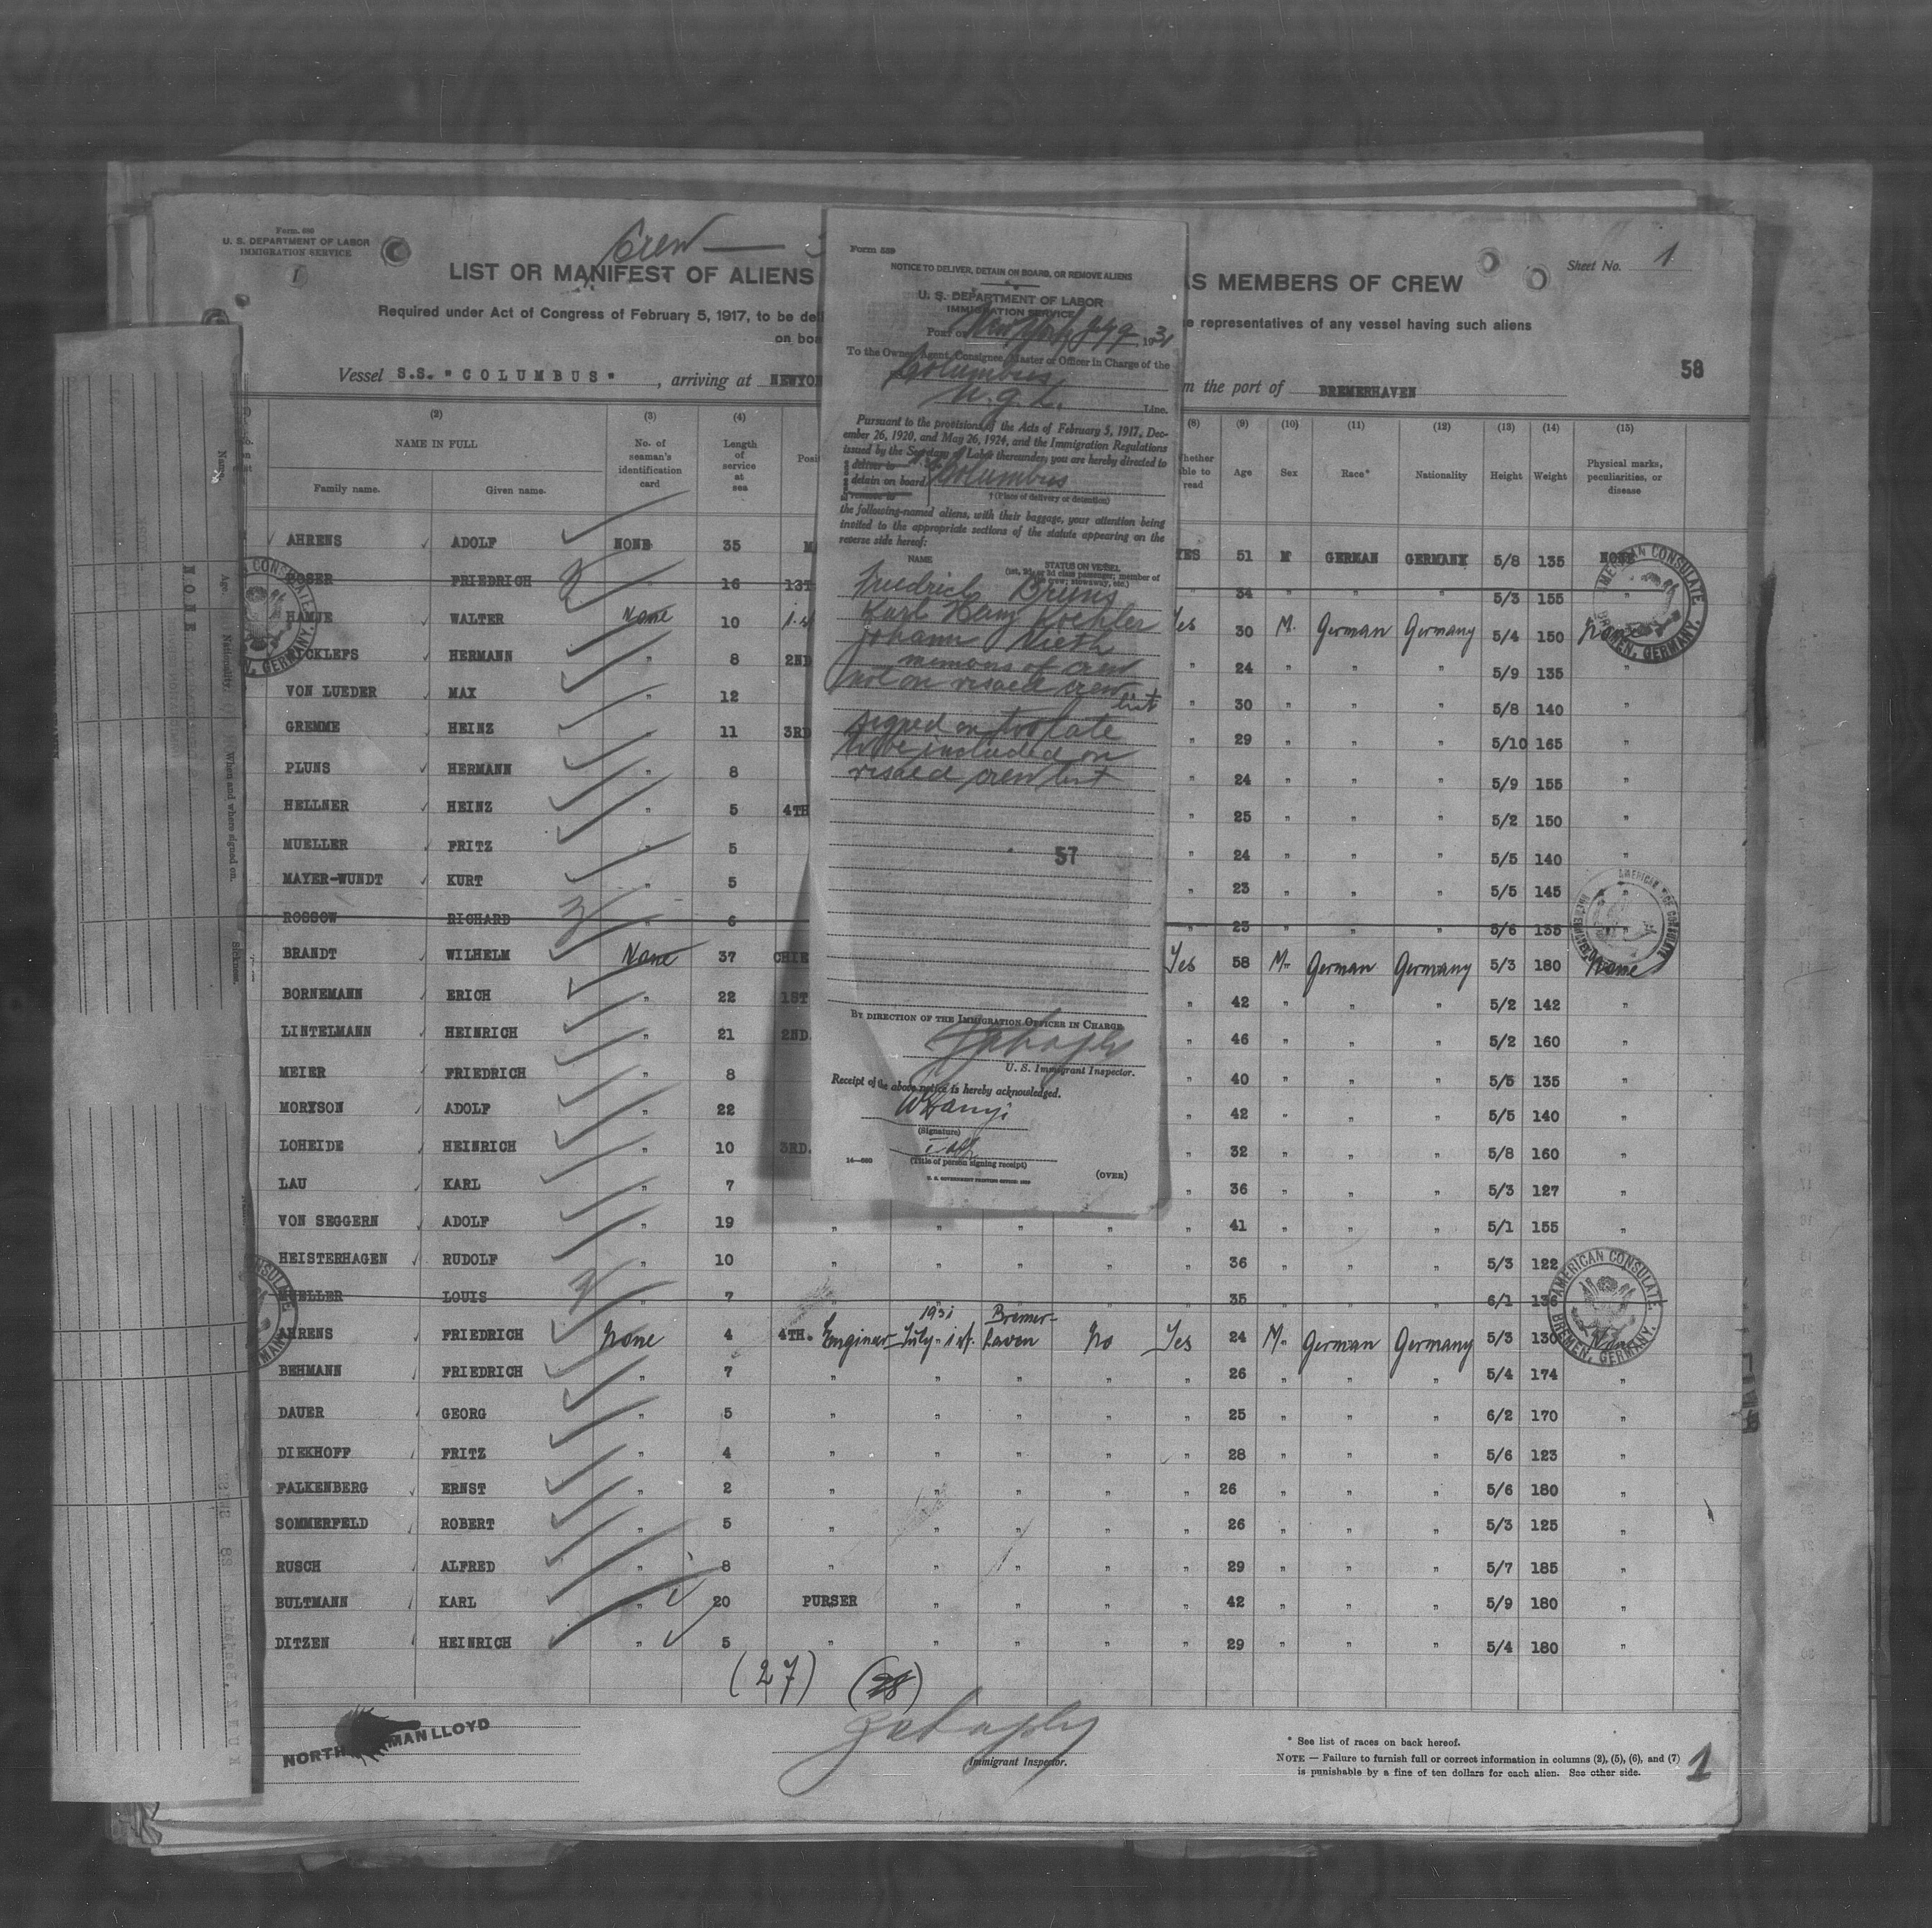 Form 680
U. S. DEPARTMENT OF LABOR
IMMIGRATION SERVICE
Crew
Sheet No. 1
LIST OR MANIFEST OF ALIENS
AS MEMBERS OF CREW
Required under Act of Congress of February 5, 1917, to be
representatives of any vessel having such aliens
58
Vessel S.S. "COLUMBUS", arriving at
the port of BREMERHAVEN
(2) (3) (4) (8) (9) (10) (11) (12) (13) (14) (15)
NAME IN FULL
Family name. Given name.
No. of seaman's identification card
Length of service at sea
read
Age Sex Race* Nationality Height Weight
Physical marks, peculiarities, or disease
AHRENS ADOLF NONE 35 YES 51 M GERMAN GERMANY 5/8 135
FRIEDRICH " 16 34 " " " 5/3 155 "
HAMJE WALTER None 10 Yes 30 M. German Germany 5/4 150 None
HERMANN " 8 2ND " 24 " " " 5/9 135 "
VON LUEDER MAX " 12 " 30 " " " 5/8 140 "
GREMME HEINZ " 11 3RD " 29 " " " 5/10 165 "
PLUNS HERMANN " 8 " 24 " " " 5/9 155 "
HELLNER HEINZ " 5 4TH " 25 " " " 5/2 150 "
MUELLER FRITZ " 5 " 24 " " " 5/5 140 "
MAYER-WUNDT KURT " 5 " 23 " " " 5/5 145 "
ROSSOW RICHARD " 6 " 25 " " " 5/6 135 "
BRANDT WILHELM None 37 Yes 58 M. German Germany 5/3 180 None
BORNEMANN ERICH " 22 1ST " 42 " " " 5/2 142 "
LINTELMANN HEINRICH " 21 2ND. " 46 " " " 5/2 160 "
MEIER FRIEDRICH " 8 " 40 " " " 5/5 135 "
MORYSON ADOLF " 22 " 42 " " " 5/5 140 "
LOHEIDE HEINRICH " 10 3RD. " 32 " " " 5/8 160 "
LAU KARL " 7 " 36 " " " 5/3 127 "
VON SEGGERN ADOLF " 19 " " " " " 41 " " " 5/1 155 "
HEISTERHAGEN RUDOLF " 10 " " " " " 36 " " " 5/3 122
MUELLER LOUIS " 7 " " " " " 35 " " " 6/1 136
AHRENS FRIEDRICH None 4 4TH. Engineer July 1st. 1931 Bremerhaven No Yes 24 M. German Germany 5/3 130 None
BEHMANN FRIEDRICH " 7 " " " " " 26 " " " 5/4 174 "
DAUER GEORG " 5 " " " " " 25 " " " 6/2 170 "
DIEKHOFF FRITZ " 4 " " " " " 28 " " " 5/6 123 "
FALKENBERG ERNST " 2 " " " " " 26 " " " 5/6 180 "
SOMMERFELD ROBERT " 5 " " " " " 26 " " " 5/3 125 "
RUSCH ALFRED " 8 " " " " " 29 " " " 5/7 185 "
BULTMANN KARL " 20 PURSER " " " " 42 " " " 5/9 180 "
DITZEN HEINRICH " 5 " " " " " 29 " " " 5/4 180 "
(27) (28)
Immigrant Inspector.
* See list of races on back hereof.
NOTE — Failure to furnish full or correct information in columns (2), (5), (6), and (7)
is punishable by a fine of ten dollars for each alien. See other side.
1
AMERICAN CONSULATE
BREMEN, GERMANY.
Form 689
NOTICE TO DELIVER, DETAIN ON BOARD, OR REMOVE ALIENS
U. S. DEPARTMENT OF LABOR
IMMIGRATION SERVICE
Port of New York July 9, 1931
To the Owner, Agent, Consignee, Master or Officer in Charge of the
Columbus
N. G. L. Line.
Pursuant to the provisions of the Acts of February 5, 1917, Dec-
ember 26, 1920, and May 26, 1924, and the Immigration Regulations
issued by the Secretary of Labor thereunder, you are hereby directed to
deliver to
detain on board Columbus
remove to
† (Place of delivery or detention)
the following-named aliens, with their baggage, your attention being
invited to the appropriate sections of the statute appearing on the
reverse side hereof:
NAME STATUS ON VESSEL
(1st, 2d, or 3d class passenger; member of
crew; stowaway, etc.)
Friedrich Bruns
Karl Hanz Koehler
Johann Vieth
members of crew
not on visaed crew list
signed on too late
to be included on
visaed crew list
57
BY DIRECTION OF THE IMMIGRATION OFFICER IN CHARGE
U. S. Immigrant Inspector.
Receipt of the above notice is hereby acknowledged.
(Signature)
(Title of person signing receipt)
(OVER)
U. S. GOVERNMENT PRINTING OFFICE